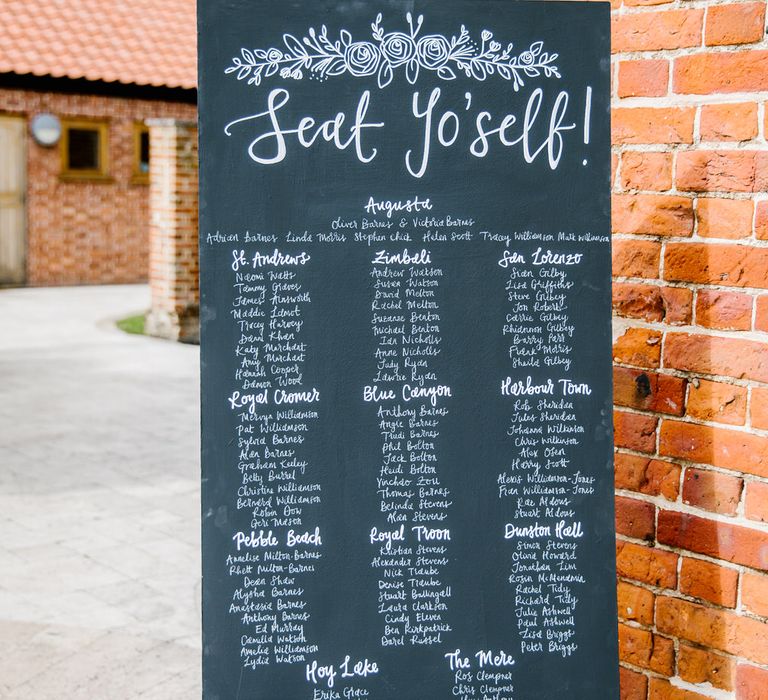 Seat Yo'self!
Augusta
Oliver Barnes & Victoria Barnes
Adrian Barnes Linda Morris Stephen Chick Helen Scott Tracey Williamson Mark Williamson
St. Andrews
Naomi Watts
Tammy Graves
James Ainsworth
Maddie Lamot
Tracey Harvey
Dami Khan
Katy Marchant
Amy Marchant
Hannah Cooper
Damon Wood
Zimbali
Andrew Watson
Susan Watson
David Melton
Rachel Melton
Suzanne Benton
Michael Benton
Ian Nicholls
Anne Nicholls
Judy Ryan
Lawrie Ryan
San Lorenzo
Sian Gilby
Lisa Griffiths
Steve Gilbey
Jon Robert
Carrie Gilbey
Rhiannon Gilbey
Barry Parr
Frank Morris
Sheila Gilbey
Royal Cromer
Mervyn Williamson
Pat Williamson
Sylvia Barnes
Alan Barnes
Graham Keeley
Betty Burrel
Christine Williamson
Bernard Williamson
Robin Dow
Geri Mason
Blue Canyon
Anthony Barnes
Angie Barnes
Trudi Barnes
Phil Bolton
Jack Bolton
Heidi Bolton
Yinchao Zou
Thomas Barnes
Belinda Stevens
Alan Stevens
Harbour Town
Rob Sheridan
Jules Sheridan
Johanna Wilkinson
Chris Wilkinson
Alex Osen
Harry Scott
Alexis Williamson-Jones
Fran Williamson-Jones
Kat Aldous
Stuart Aldous
Pebble Beach
Annelise Milton-Barnes
Rhett Milton-Barnes
Dean Shaw
Alysha Barnes
Anastasia Barnes
Anthony Barnes
Ed Murray
Camilla Watson
Amelia Williamson
Lydia Watson
Royal Troon
Kristian Stevens
Alexander Stevens
Nick Traube
Denise Traube
Stuart Bullingall
Laura Clarkson
Cindy Eleven
Ben Kirkpatrick
Darel Russel
Dunston Hall
Simon Stevens
Olivia Howard
Jonathan Lim
Rosin McMenamin
Rachel Tidy
Richard Tidy
Julie Ashwell
Paul Ashwell
Lisa Briggs
Peter Briggs
Hoy Lake
Erika Grace
The Mere
Ros Clempner
Chris Clempner